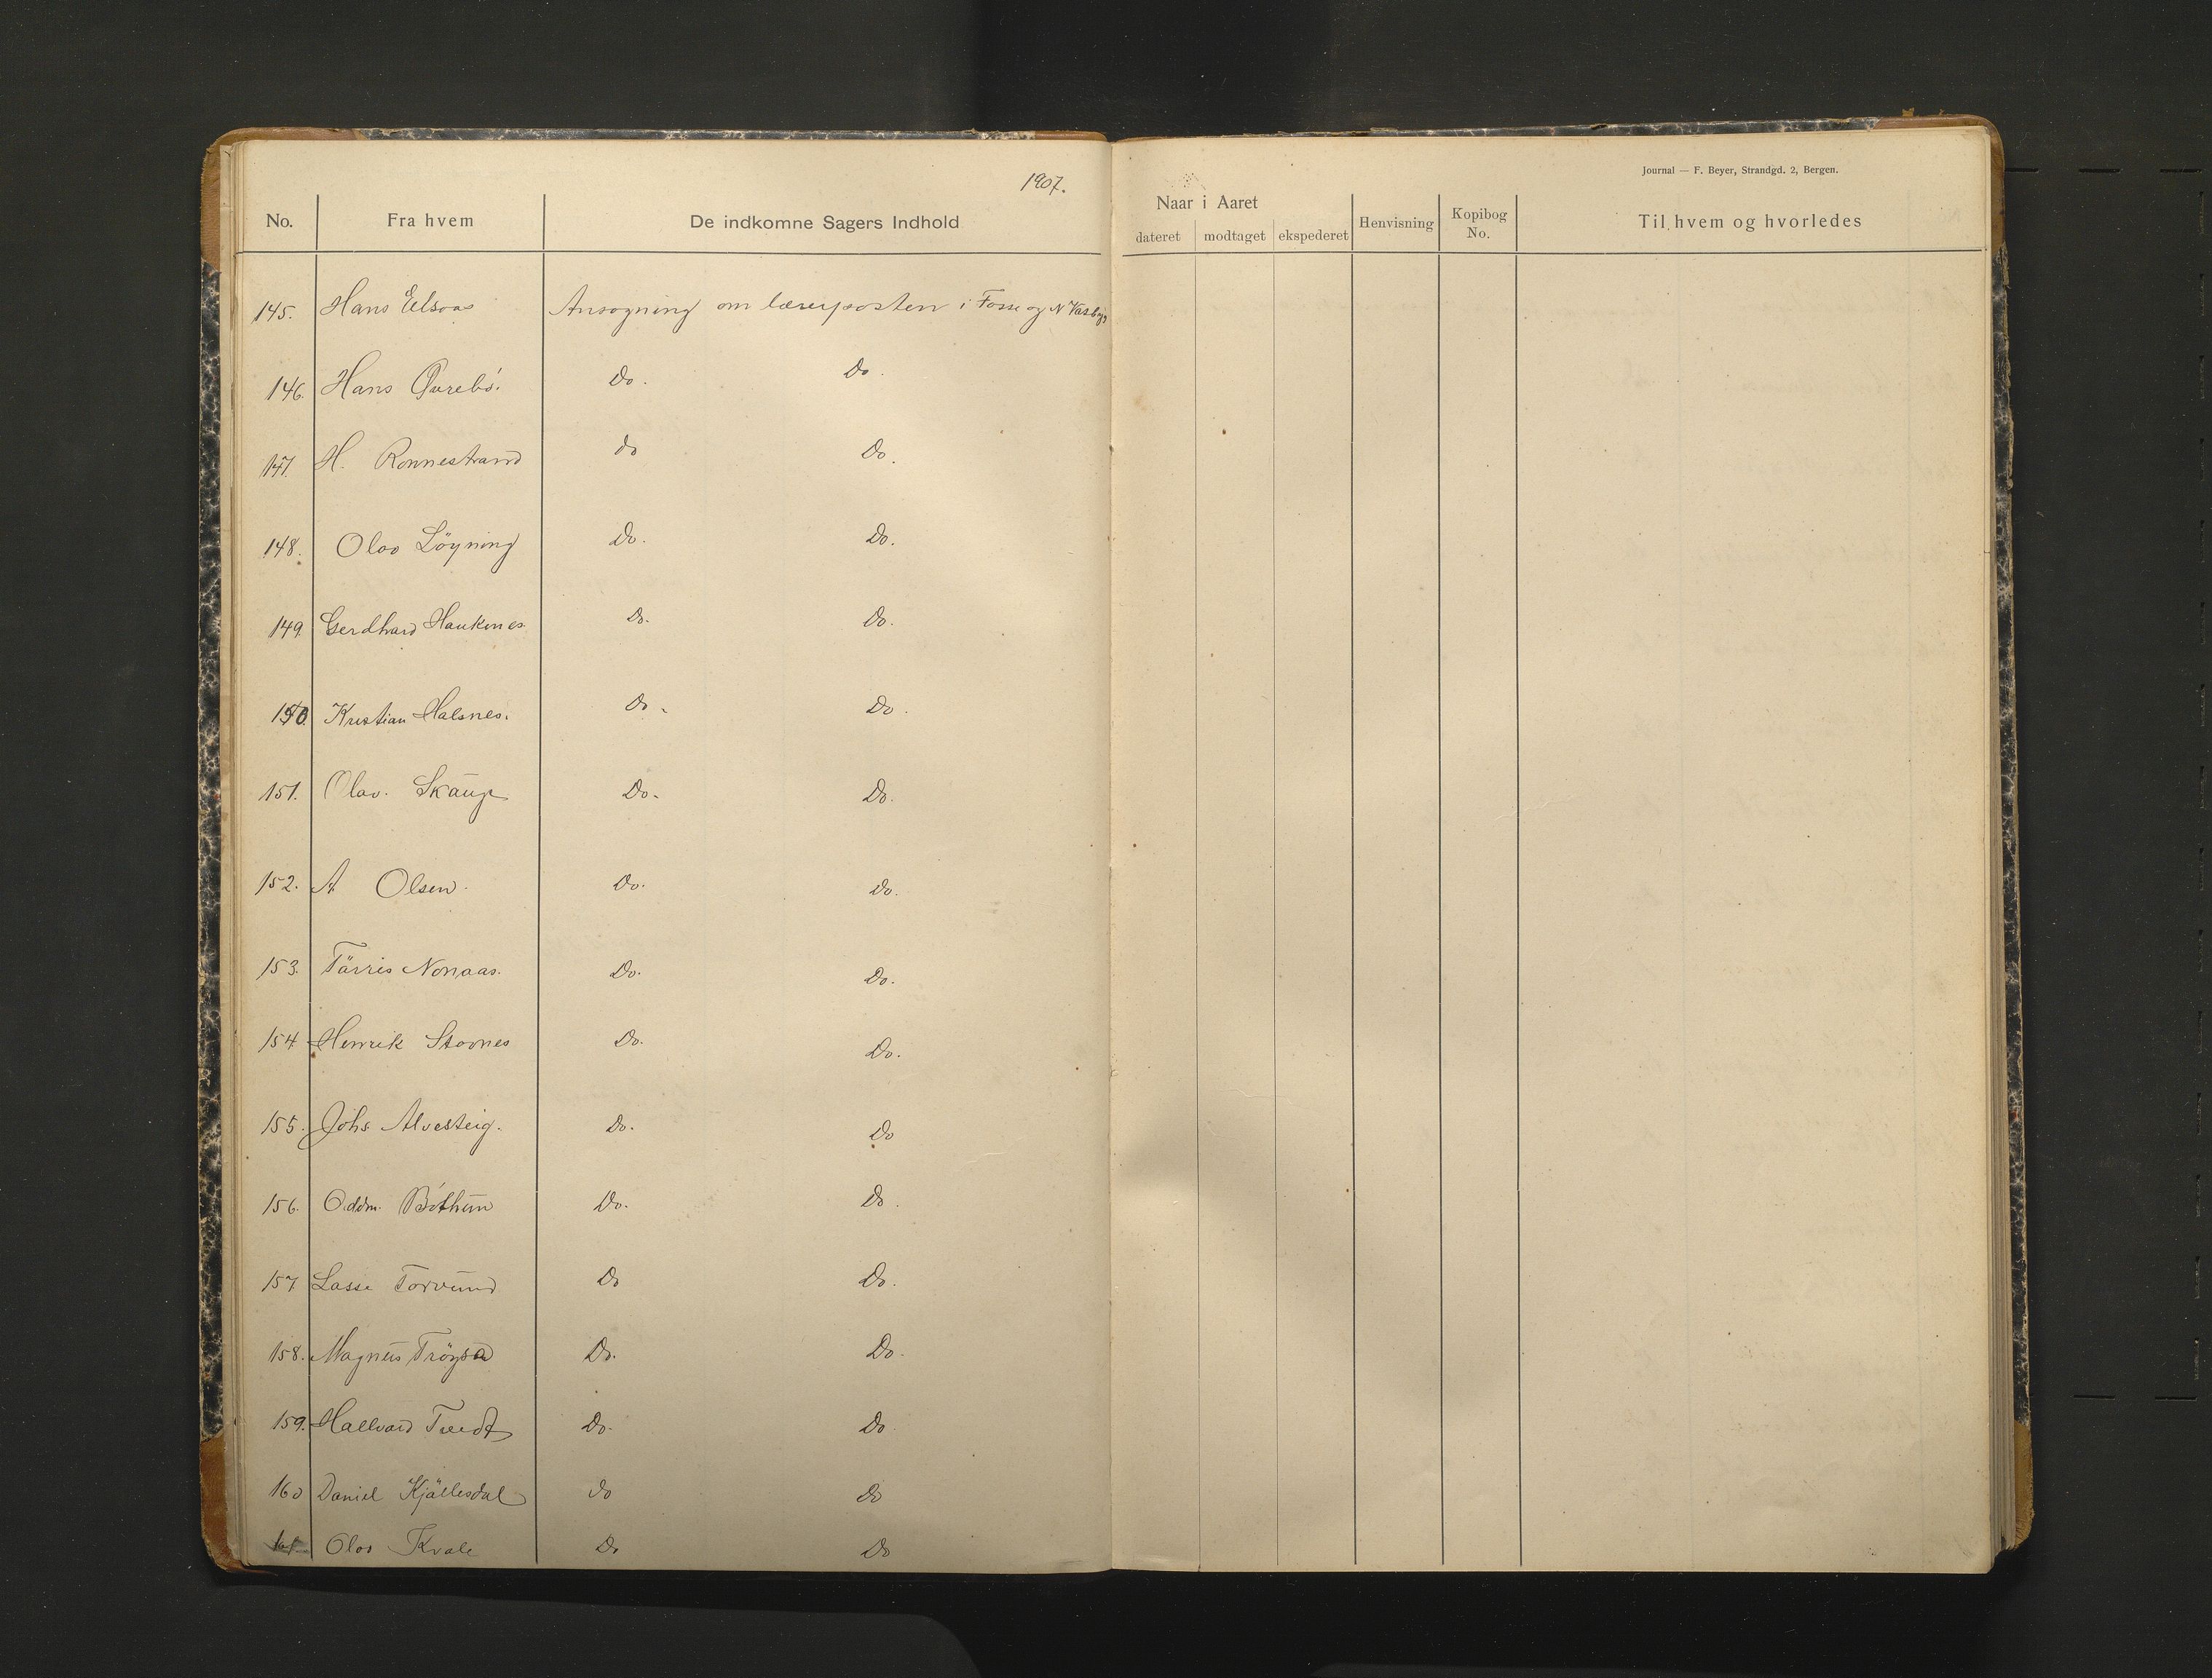 1907.
Journal — F. Beyer, Strandgd. 2, Bergen.
No. Fra hvem De indkomne Sagers Indhold Naar i Aaret dateret modtaget ekspederet Henvisning Kopibog No. Til hvem og hvorledes
145. Hans Eelsaas Ansøgning om lærerposten i Fosse og N Vasbygd
146. Hans Øvrebö. Do. Do.
147. H. Ronnestrand do Do.
148. Olav Löyning Do. Do.
149. Gerdhard Haukenes Do. Do.
150. Kristian Halsnes. Do. Do.
151. Olav. Skaup Do. Do.
152. A Olsen. Do. Do.
153. Tärris Nonaas. Do. Do.
154 Henrik Stavnes Do. Do.
155. Johs Alvesteig. Do. Do
156. Oddm. Böthun Do. Do.
157 Lasse Torvund Do Do.
158. Magnus Do. Do.
159. Hallvard Tvedt Do. Do
160 Daniel Kjällesdal do Do
161. Olav Kvale Do Do